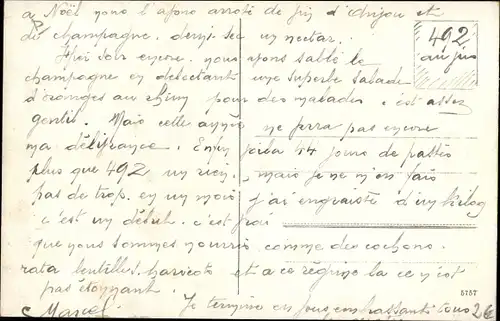 a Noël nous l'avons arrosé de vin d'Anjou et
de champagne. demi sec un nectar.
Hier soir encore nous avons sablé le
champagne en délectant une superbe salade
d'oranges au rhum pour des malades c'est assez
gentil. Mais cette année ne verra pas encore
ma délifrance. Enfin 44 jours de pattes
plus que 492 un rien, mais je ne m'en fais
pas de trop. en un mois j'ai engraissé d'un kilog
c'est un début. c'est vrai
que nous sommes nourris comme des cochons.
rata lentilles, haricots et a ce régime la ce n'est
pas étonnant.
Je termine en vous embrassant tous
Marcel
492
au jus
5757